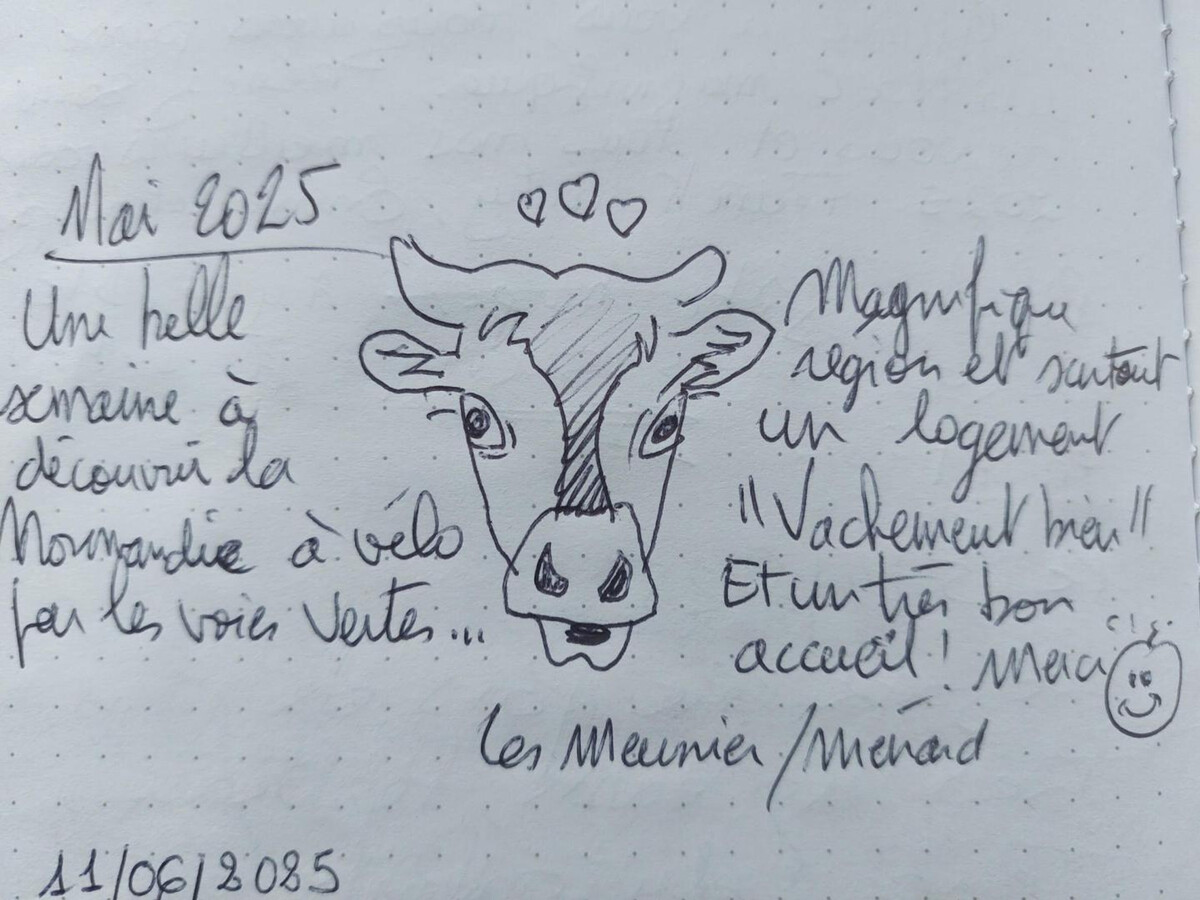 Mai 2025
Une belle
semaine à
découvrir la
Normandie à vélo
par les voies vertes...
Magnifique
région et surtout
un logement
"Vachement bien"
Et un très bon
accueil! Merci
Les Meunier/Ménard
11/06/2025